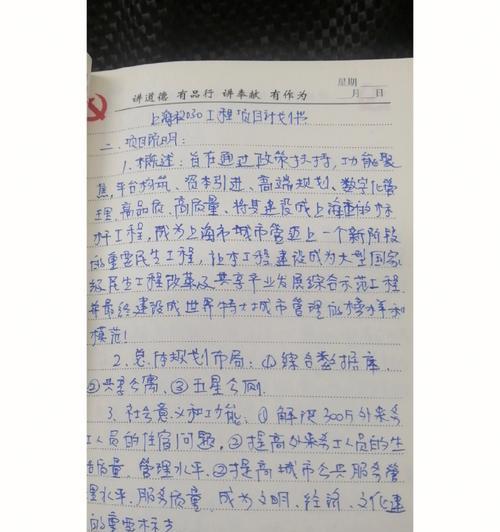 星期
讲道德 有品行 讲奉献 有作为
月 日
上海2030工程项目计划书
一、项目说明:
1. 概述:旨在通过政策扶持,功能聚
焦,平台构筑、资本引进、高端规划、数字化管
理、高品质、高质量、将其建设成上海重的标
杆工程,成为上海市城市管迈上一个新阶段
的重要民生工程,让本工程建设成为大型国家
级民生工程改革及共享产业发展综合示范工程
并最终建设成世界特大城市管理的榜样和
模范!
2. 总体规划布局:①综合数据库、
②共享公寓、③五星公厕.
3. 社会意义和功能、①解决300万外来务
工人员的住宿问题,②提高外来务工人员的生
活质量、管理水平、②提高城市公共服务管
理水平、服务质量、成为文明、经济、文化建
的重要标志